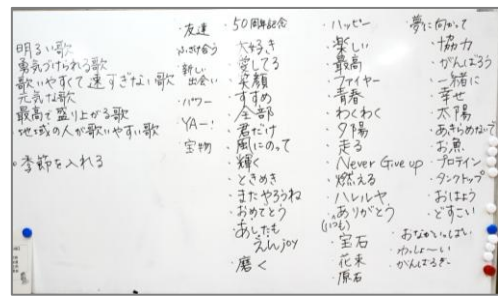 明るい歌
勇気づけられる歌
歌いやすくて速すぎない歌
元気な歌
最高で盛り上がる歌
地域の人が歌いやすい歌
○季節を入れる
・友達
・ふざけ合う
・新しい
出会い
・パワー
・YA-!
・宝物
・50周年記念
・大好き
・愛してる
・笑顔
・すすめ
・全部
・君だけ
・風にのって
・輝く
・ときめき
・またやろうね
・おめでとう
・あしたも
えんjoy
・磨く
・ハッピー
・楽しい
・最高
・ファイヤー
・青春
・わくわく
・夕陽
・走る
・Never Give up
・燃える
・ハレルヤ
・ありがとう
(いつも)
・宝石
・花束
・原石
・夢に向かって
・協力
・がんばろう
・一緒に
・幸せ
・太陽
・あきらめないで
・お魚
・プロテイン
・タンクトップ
・おはよう
・どすこい
・おなかいっぱい
・わっしょーい
・がんばるぞー